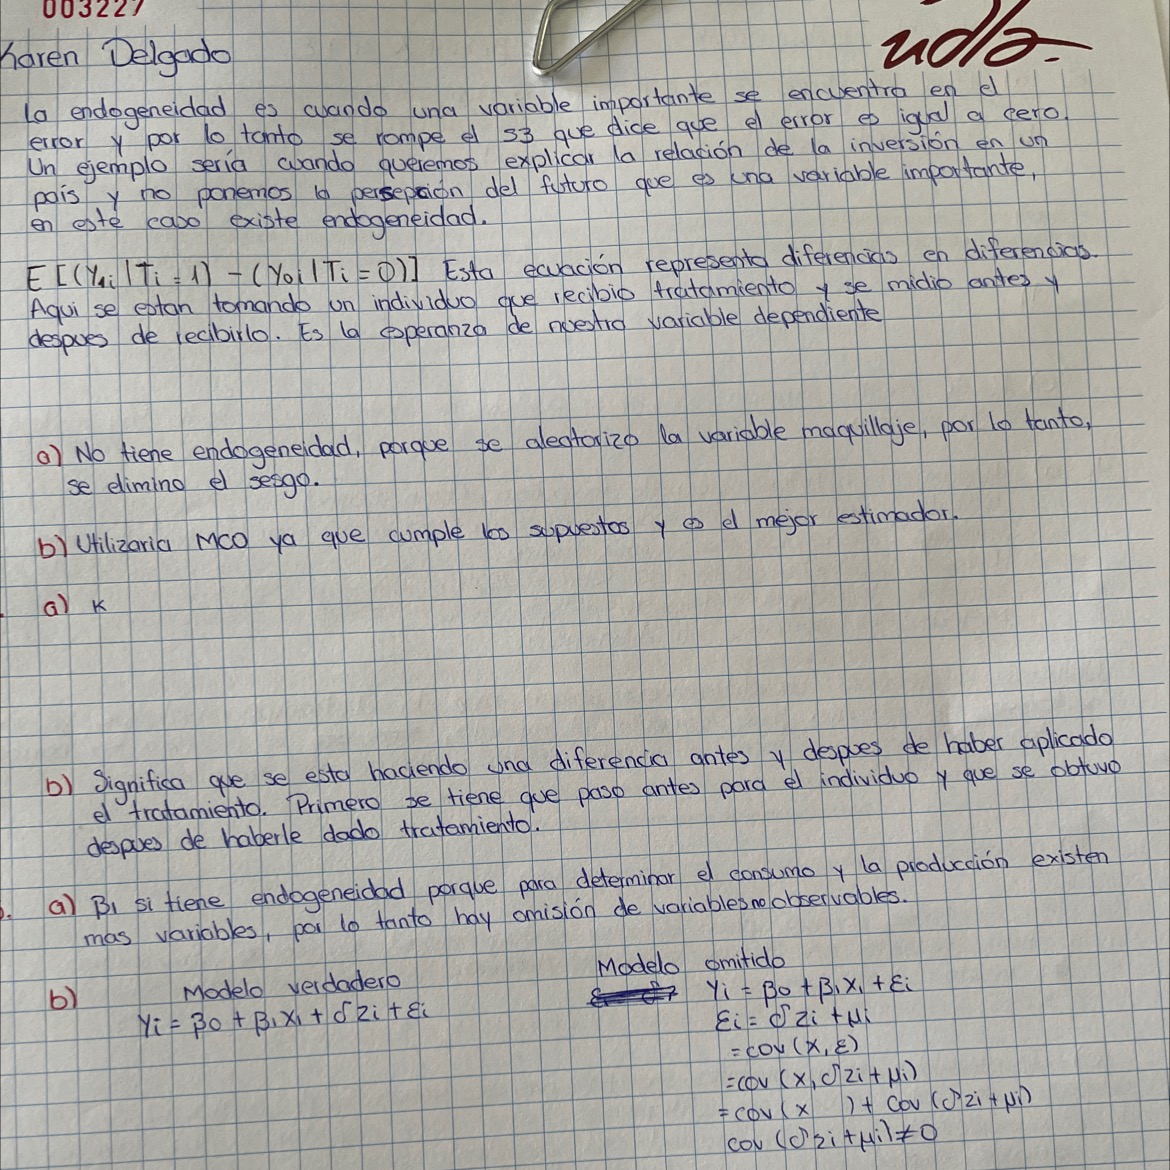 003227
udla-
Karen Delgado
la endogeneidad es cuando una variable importante se encuentra en el
error y por lo tanto se rompe el S3 que dice que el error es igual a cero.
Un ejemplo sería cuando queremos explicar la relación de la inversión en un
país y no ponemos la persepción del futuro que es una variable importante,
en este caso existe endogeneidad.
E [(Y1i | Ti = 1) - (Y0i | Ti = 0)] Esta ecuación representa diferencias en diferencias.
Aqui se estan tomando un individuo que recibio tratamiento y se midio antes y
despues de recibirlo. Es la esperanza de nuestra variable dependiente
a) No tiene endogeneidad, porque se aleatorizo la variable maquillaje, por lo tanto,
se elimino el sesgo.
b) Utilizaria MCO ya que cumple los supuestos y es el mejor estimador.
a) K
b) Significa que se esta haciendo una diferencia antes y despues de haber aplicado
el tratamiento. Primero se tiene que paso antes para el individuo y que se obtuvo
despues de haberle dado tratamiento.
a) β1 si tiene endogeneidad porque para determinar el consumo y la producción existen
mas variables, por lo tanto hay omisión de variables no observables.
b) Modelo verdadero
Yi = β0 + β1X1 + δZi + εi
Modelo omitido
Yi = β0 + β1X1 + εi
εi = δZi + μi
= cov (X, ε)
= cov (X, δZi + μi)
= cov (X ) + cov (δZi + μi)
cov (δZi + μi) ≠ 0